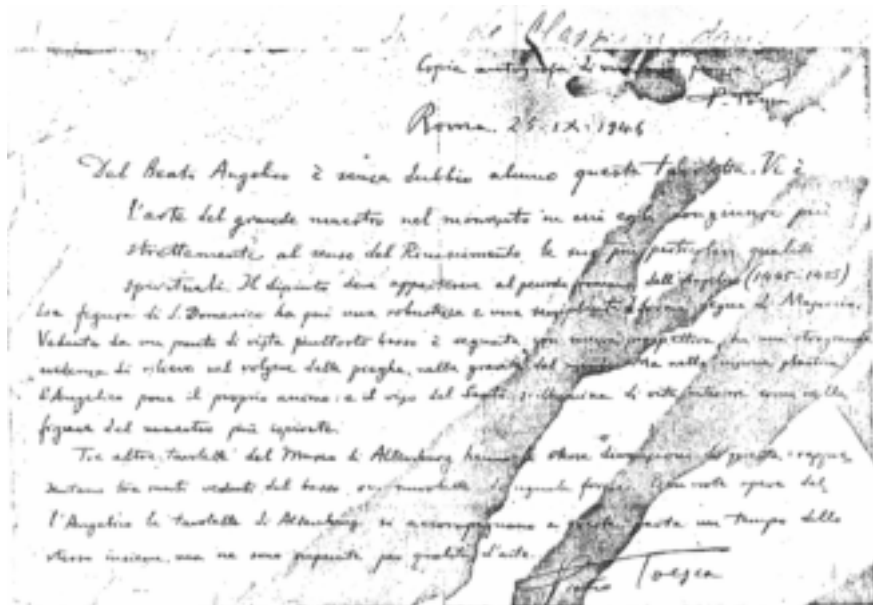 Copia autografa di
P. Toesca
Roma. 25. IX. 1946
Del Beato Angelico è senza dubbio alcuno questa tavoletta. Vi è
l'arte del grande maestro nel momento in cui egli congiunse più
strettamente al senso del Rinascimento le sue più particolari qualità
spirituali. Il dipinto deve appartenere al periodo romano dell'Angelico (1445-1455)
La figura di S. Domenico ha qui una robustezza e una di forma degna di Masaccio.
Veduta da un punto di vista piuttosto basso è seguita con nuova prospettiva, ha una
di rilievo nel volgere delle pieghe, nella gravità del Ma nella visione plastica
l'Angelico pone il proprio animo: e il viso del Santo si illumina di vita interiore come nelle
figure del maestro più ispirate.
Tre altre tavolette del Museo di Altenburg hanno le stesse dimensioni di questa: rappre
sentano tre santi veduti dal basso, su mensolette di uguale forma. Ben note opere del
l'Angelico le tavolette di Altenburg si accompagnano a questa un tempo dello
stesso insieme, ma ne sono superate per qualità d'arte.
Pietro Toesca